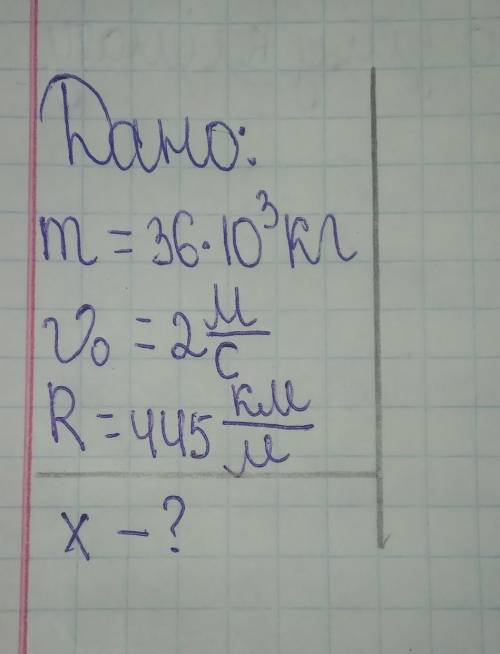 Дано:
m = 36·10³ кг
V₀ = 2 м/с
R = 445 км/м
x - ?